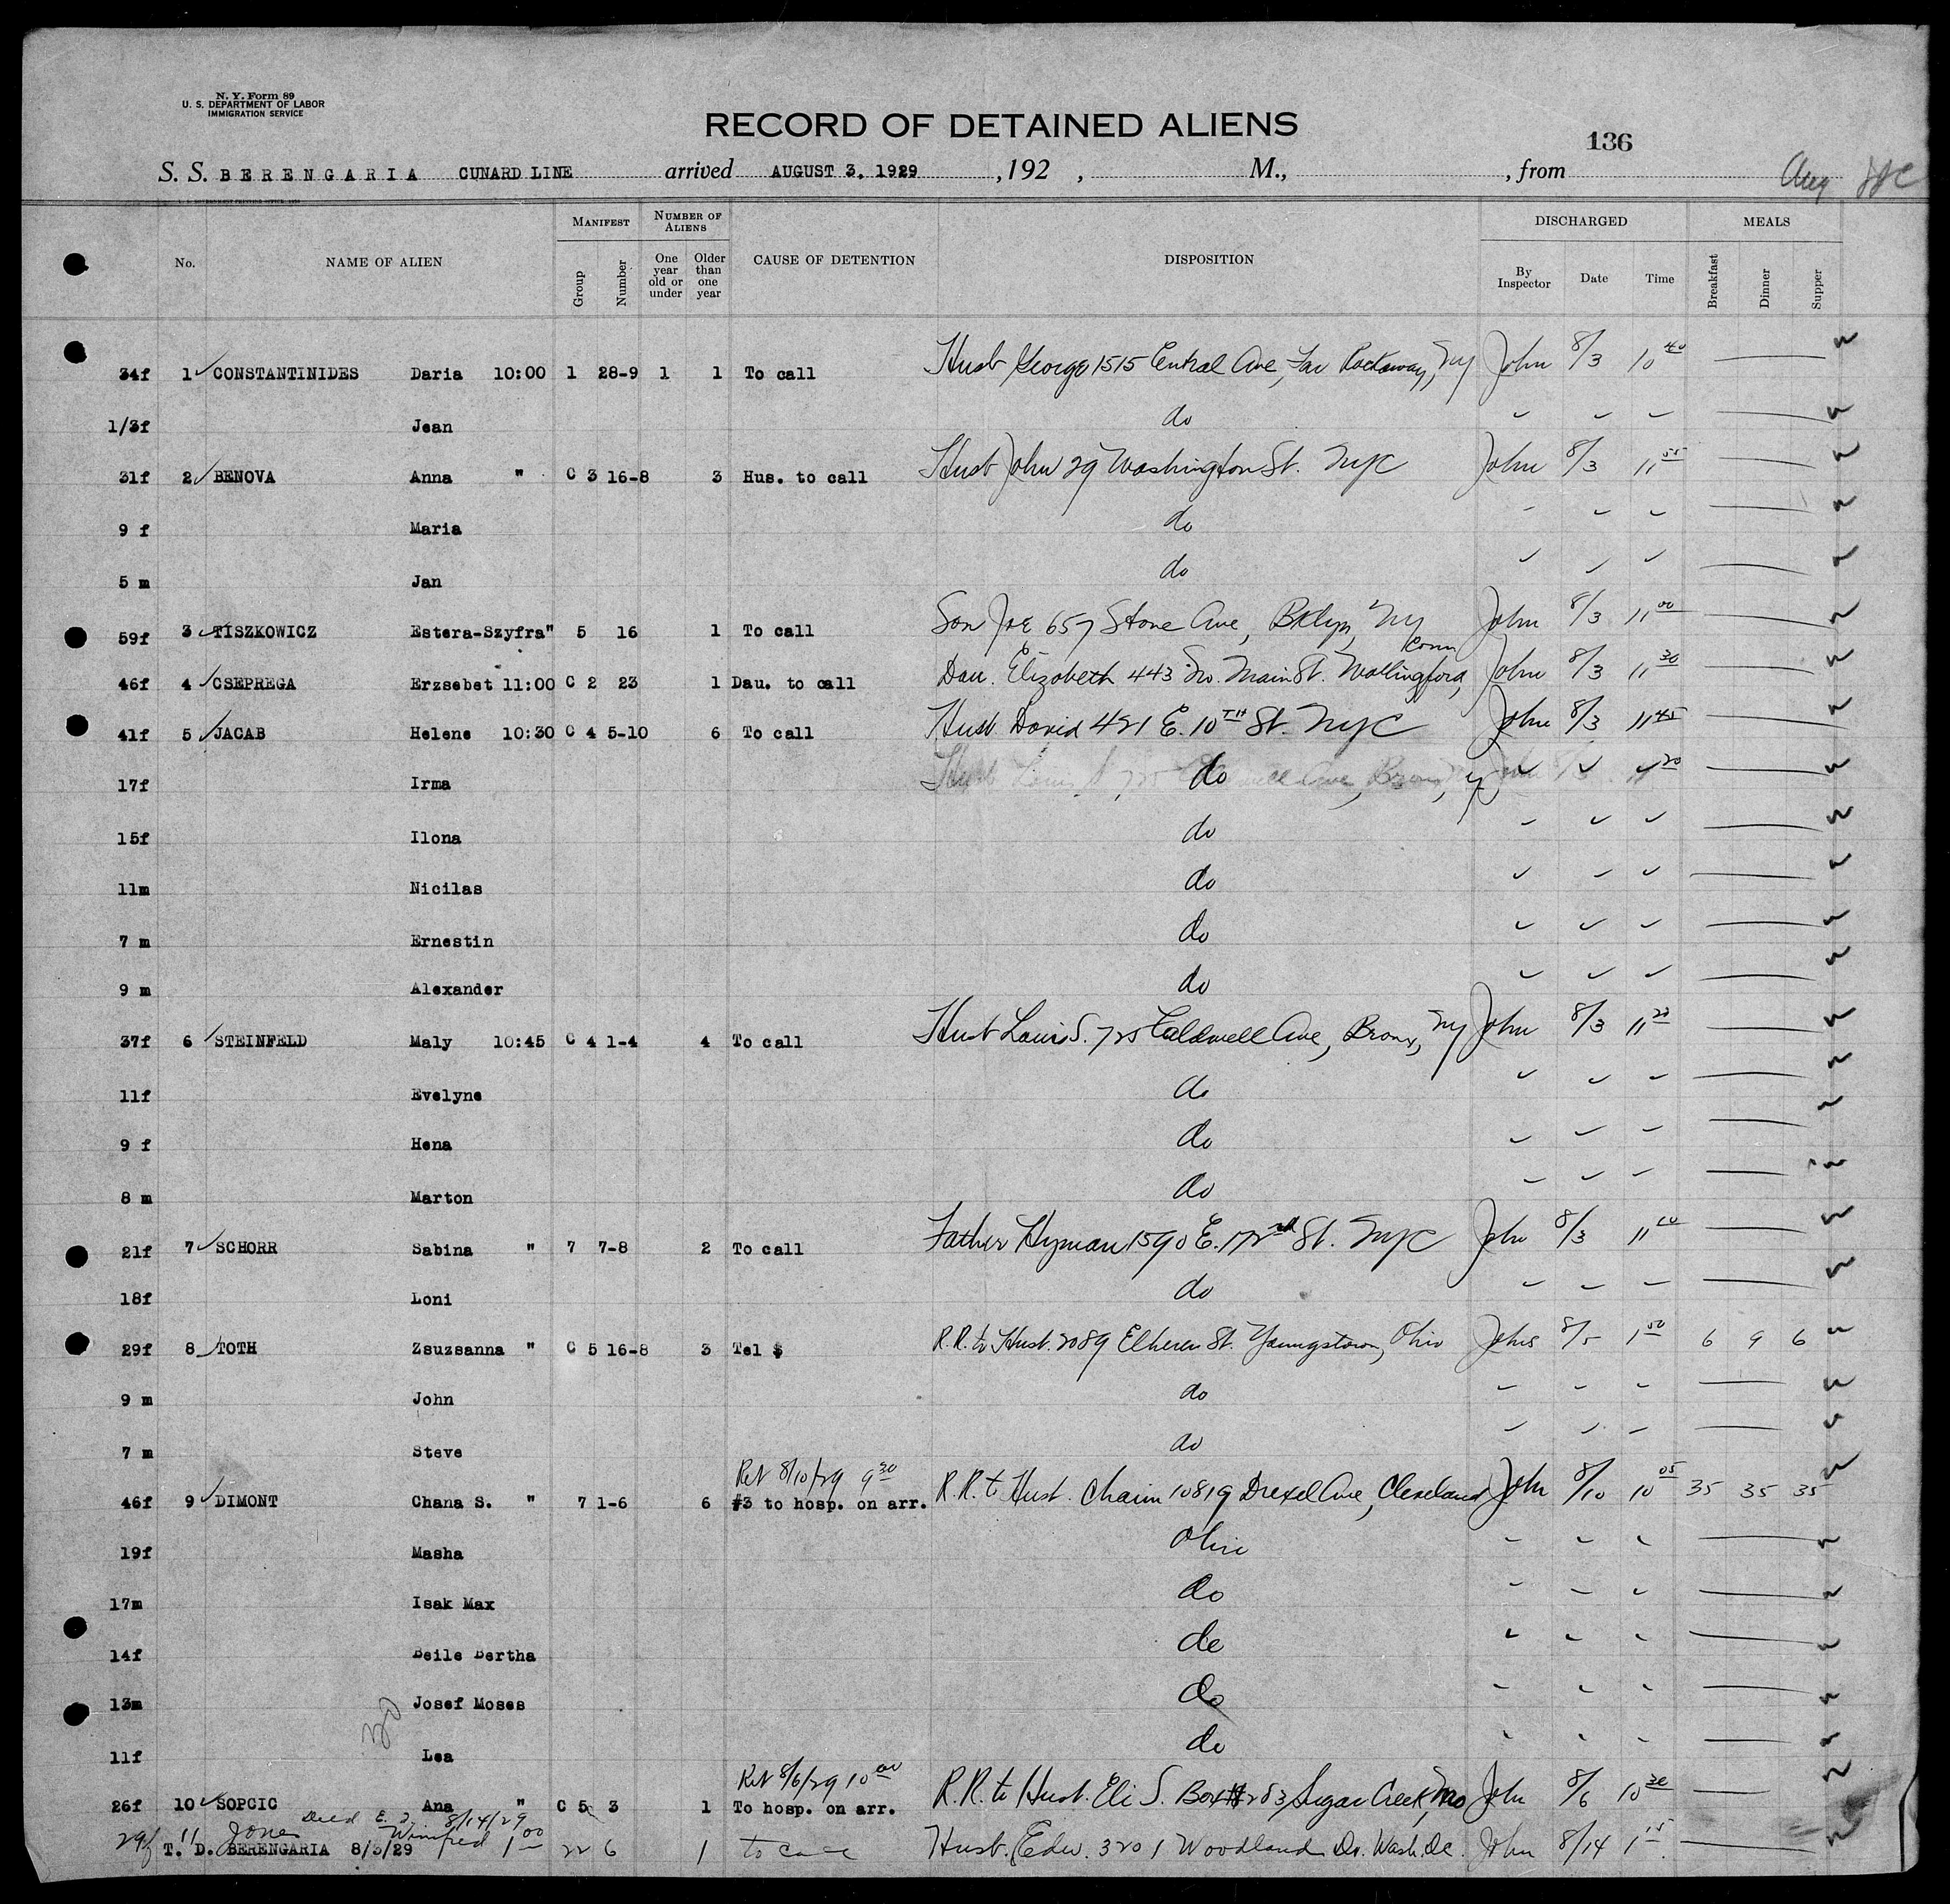 N. Y. Form 89
U. S. DEPARTMENT OF LABOR
IMMIGRATION SERVICE
RECORD OF DETAINED ALIENS
136
S. S. BERENGARIA CUNARD LINE arrived AUGUST 3, 1929 , 192 , M., , from Aug
No. NAME OF ALIEN MANIFEST Group Number NUMBER OF ALIENS One year old or under Older than one year CAUSE OF DETENTION DISPOSITION DISCHARGED By Inspector Date Time MEALS Breakfast Dinner Supper
34f 1 CONSTANTINIDES Daria 10:00 1 28-9 1 1 To call Husb George 1515 Central Ave, Far Rockaway, NY John 8/3 10 40
1/3f Jean do
31f 2 BENOVA Anna " C 3 16-8 3 Hus. to call Husb John 29 Washington St. NYC John 8/3 11 55
9 f Maria do
5 m Jan do
59f 3 TISZKOWICZ Estera-Szyfra" 5 16 1 To call Son Joe 657 Stone Ave, Bklyn, NY John 8/3 11 00
46f 4 CSEPREGA Erzsebet 11:00 C 2 23 1 Dau. to call Dau. Elizabeth 443 No. Main St. Wallingford, Conn John 8/3 11 30
41f 5 JACAB Helene 10:30 C 4 5-10 6 To call Husb David 421 E. 10TH St. NYC John 8/3 11 45
17f Irma do
15f Ilona do
11m Nicilas do
7 m Ernestin do
9 m Alexander do
37f 6 STEINFELD Maly 10:45 C 4 1-4 4 To call Husb Louis S. 725 Caldwell Ave, Bronx, NY John 8/3 11 20
11f Evelyne do
9 f Hena do
8 m Marton do
21f 7 SCHORR Sabina " 7 7-8 2 To call Father Hyman 1590 E. 172nd St. NYC John 8/3 11
18f Loni do
29f 8 TOTH Zsuzsanna " C 5 16-8 3 Tel $ R.R. to Husb. 2089 St. Youngstown, Ohio John 8/5 1 50 6 9 6
9 m John do
7 m Steve do
Ret 8/10/29 9 30
46f 9 DIMONT Chana S. " 7 1-6 6 #3 to hosp. on arr. R.R. to Husb. Chaim 10819 Drexel Ave, Cleveland John 8/10 10 05 35 35 35
19f Masha Ohio
17m Isak Max do
14f Beile Bertha do
13m Josef Moses do
11f Lea do
Ret 8/6/29 10 00
26f 10 SOPCIC Ana " C 5 3 1 To hosp. on arr. R.R. to Husb. Eli S. Box # 283, Sugar Creek, Mo John 8/6 10 30
8/14/29
29f 11 Jone Winifred 1 00 22 6 1 to call Husb. Edw. 3201 Woodland Dr. Wash. DC. John 8/14 1 15
T. D. BERENGARIA 8/3/29